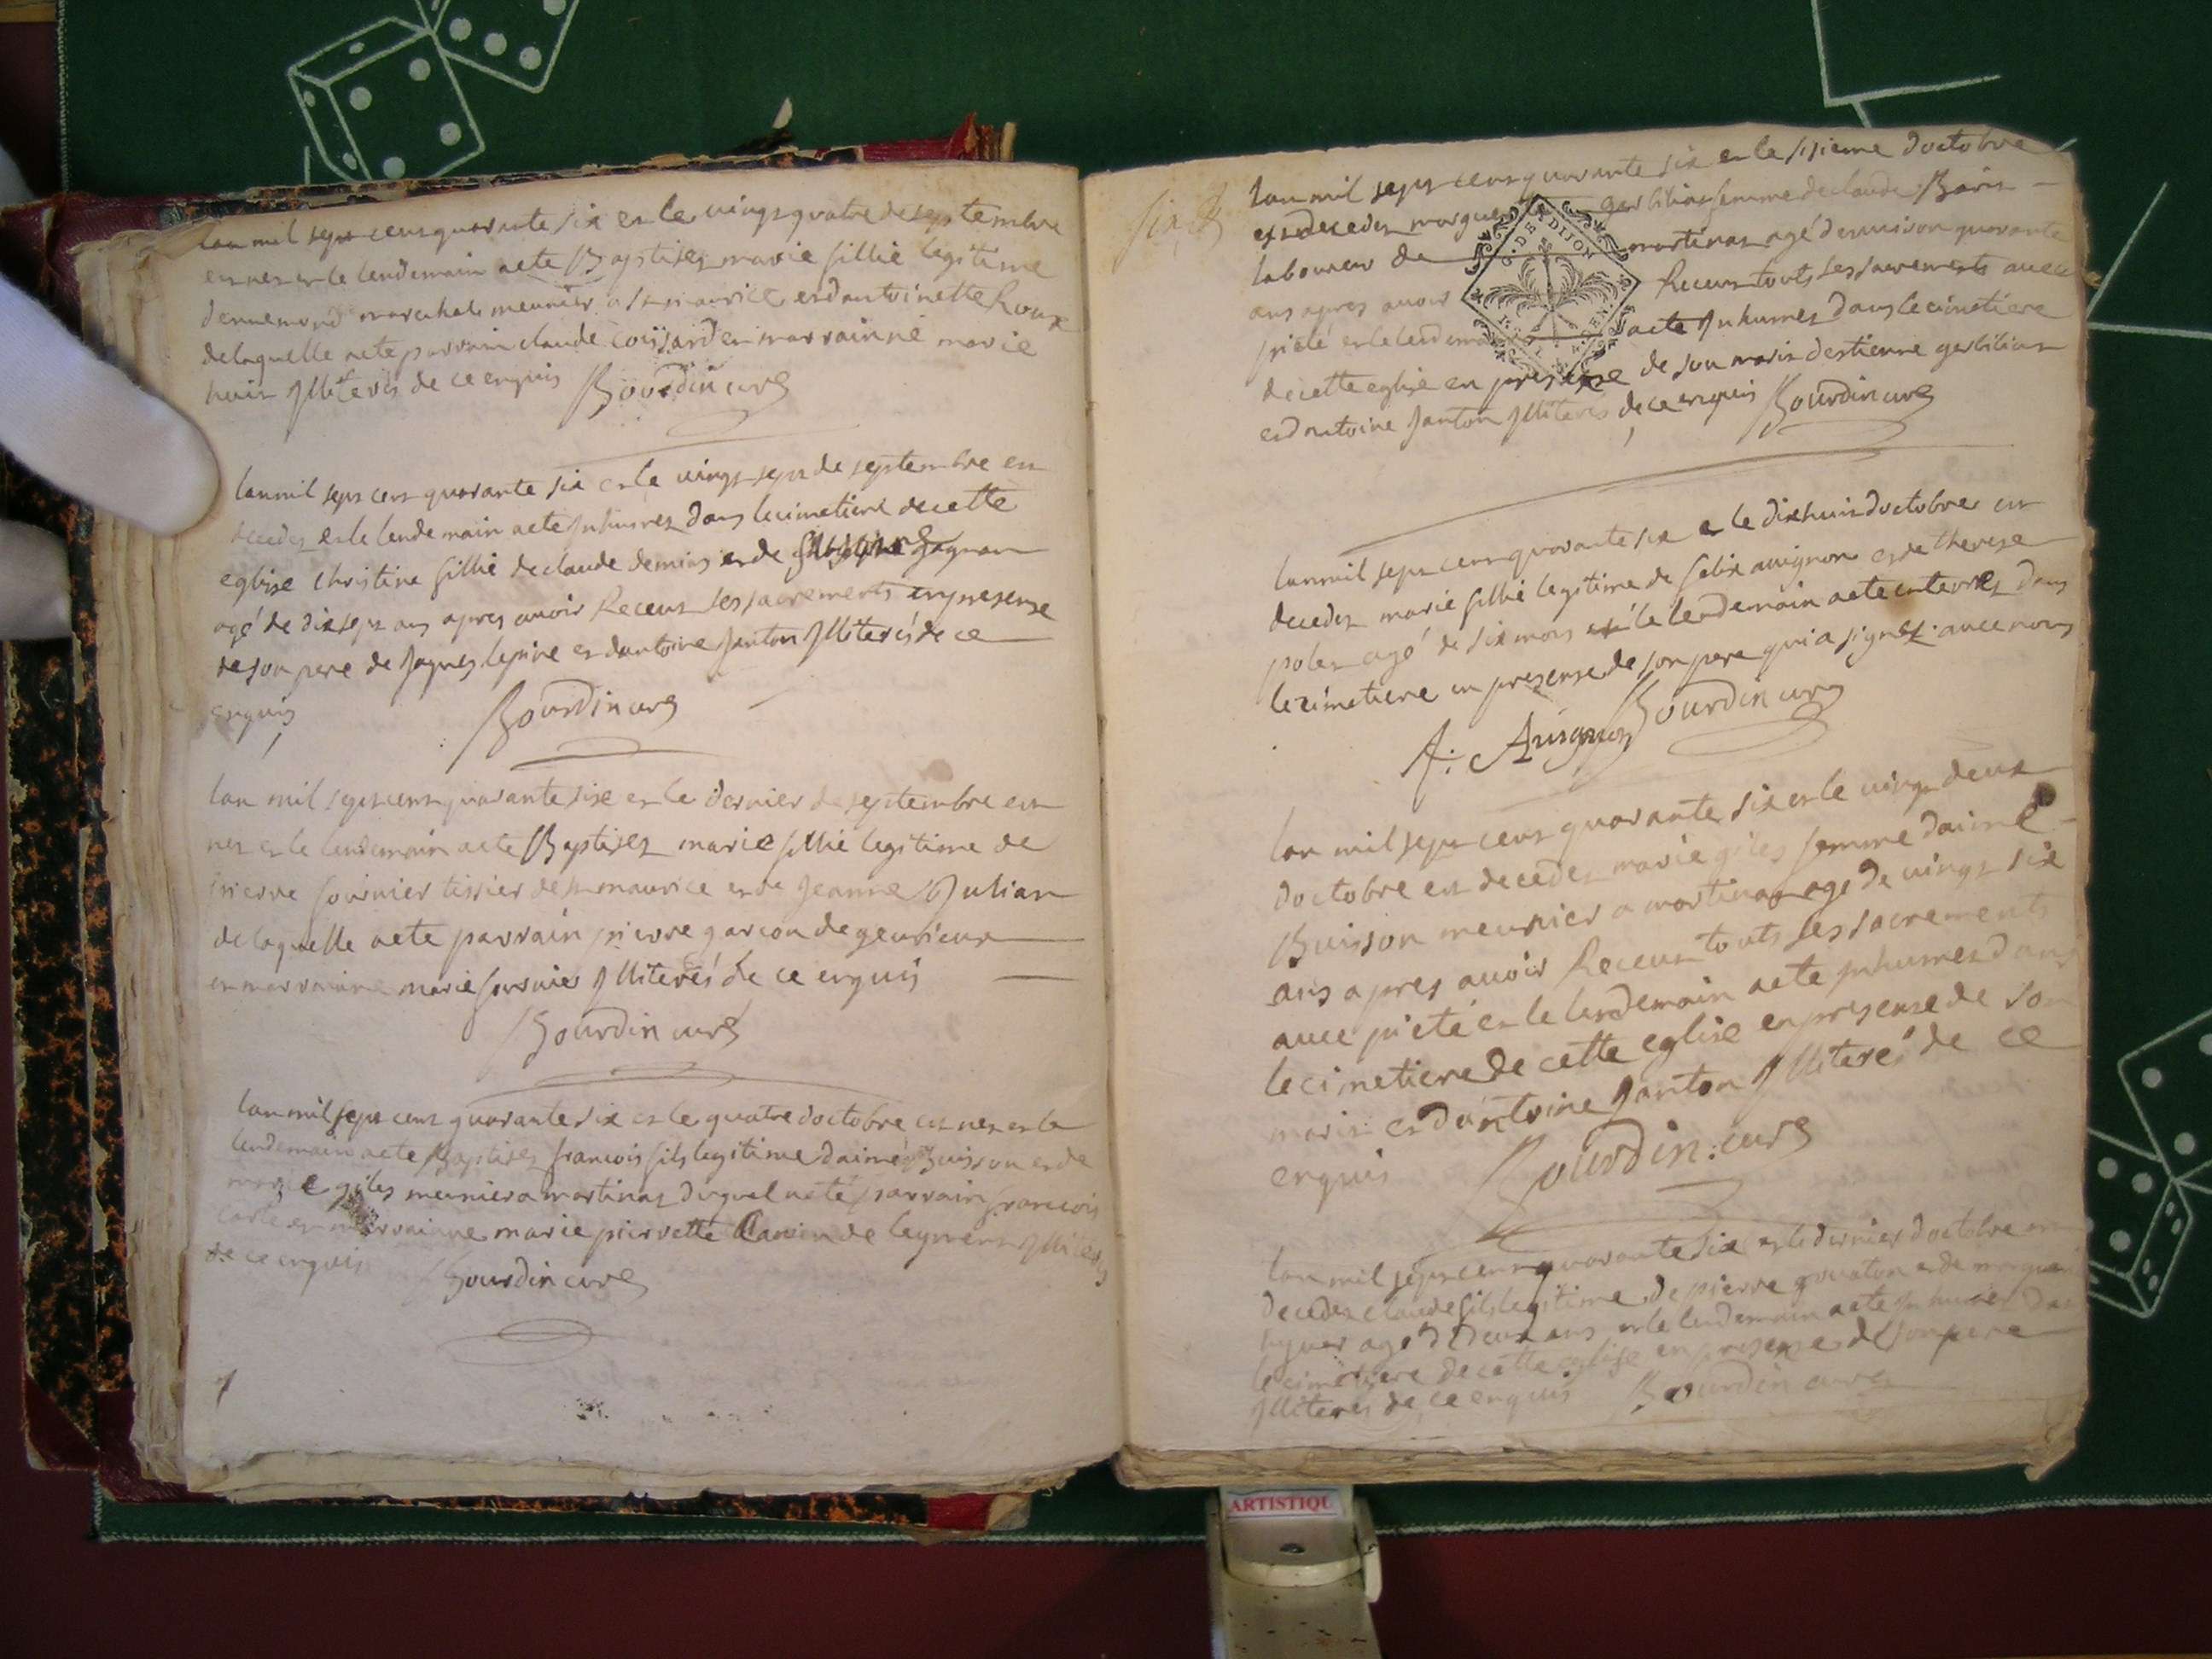 lan mil sept cent quarante six et le vingt quatre de septembre
est nes et le lendemain aete Baptisez marie fillie legitime
dennemond marechal meunier a st maurice et dantoinette Roux
de laquelle aete parrain claude coissard et marrainne marie
huit Jlliterés de ce enquis Bourdin curé
lan mil sept cent quarante six et le vingt sept de septembre est
decedez et le lendemain aete Jnhumez dans le cimetiere de cette
eglise christine fillie de claude demias et de gagnan
agé de dix sept ans apres avoir Receut ses sacrements en presense
de son pere de Jaques lepine et dantoine Janton Jlliterés de ce
enquis Bourdin curé
lan mil sept cent quarante six et le dernier de septembre est
nez et le lendemain aete Baptisez marie fillie legitime de
pierre fournier tissier de st maurice et de Jeanne Julian
de laquelle aete parrain pierre garcon de
et marrainne marie fournier Jlliterés de ce enquis
Bourdin curé
lan mil sept cent quarante six et le quatre doctobre est nez et le
lendemain aete Baptisez francois fils legitime daimé Buisson et de
marie giles meunier a martinas duquel aeté parrain francois
et marrainne marie pierrette de leyment Jlliterés
de ce enquis Bourdin curé
lan mil sept cent quarante six et le sisieme doctobre
est decedez femme de claude
laboureur de martinas agé denviron quarante
ans apres avoir Receut touts ses sacrements avec
pieté et le lendemain aete Jnhumez dans le cimetiere
de cette eglise en presense de son marit destienne gerbilias
et dantoine Janton Jlliterés de ce enquis Bourdin curé
G. DE DIJON
lan mil sept cent quarante six et le dix huit doctobre est
decedez marie fillie legitime de felix avignon et de therese
polet agé de six mois et le lendemain aete enterrez dans
le cimetiere en presense de son pere qui a signez avec nous
f: Avignon Bourdin curé
lan mil sept cent quarante six et le vingt deux
doctobre est decedez marie giles femme daimé
Buisson meunier a martinas agé de vingt six
ans apres avoir Receut touts ses sacrements
avec pieté et le lendemain aete Jnhumez dans
le cimetiere de cette eglise en presense de son
marit et dantoine Janton Jlliterés de ce
enquis Bourdin: curé
lan mil sept cent quarante six et le dernier doctobre est
decedez claude fils legitime de pierre et de
agé de deux ans et le lendemain aete Jnhumez dans
le cimetiere de cette eglise en presense de son pere
Jlliterés de ce enquis Bourdin curé
ARTISTIQU